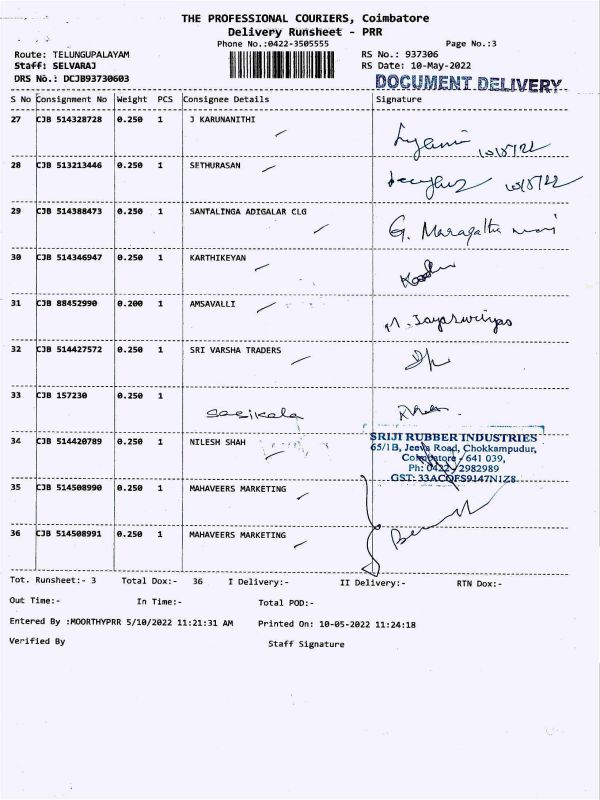 THE PROFESSIONAL COURIERS, Coimbatore
Delivery Runsheet - PRR
Phone No.:0422-3505555
Page No.:3
Route: TELUNGUPALAYAM
RS No.: 937306
Staff: SELVARAJ
RS Date: 10-May-2022
DRS No.: DCJB93730603
DOCUMENT DELIVERY
S No Consignment No Weight PCS Consignee Details Signature
27 CJB 514328728 0.250 1 J KARUNANITHI
10/5/22
28 CJB 513213446 0.250 1 SETHURASAN
10/5/22
29 CJB 514388473 0.250 1 SANTALINGA ADIGALAR CLG
G. Maragatha mani
30 CJB 514346947 0.250 1 KARTHIKEYAN
31 CJB 88452990 0.200 1 AMSAVALLI
32 CJB 514427572 0.250 1 SRI VARSHA TRADERS
33 CJB 157230 0.250 1
Sasikala
34 CJB 514420789 0.250 1 NILESH SHAH
SRIJI RUBBER INDUSTRIES
65/1B, Jeeva Road, Chokkampudur,
Coimbatore - 641 039,
Ph: 0422-2982989
GST: 33ACQFS9147N1Z8
35 CJB 514508990 0.250 1 MAHAVEERS MARKETING
36 CJB 514508991 0.250 1 MAHAVEERS MARKETING
Tot. Runsheet:- 3 Total Dox:- 36 I Delivery:- II Delivery:- RTN Dox:-
Out Time:- In Time:- Total POD:-
Entered By :MOORTHYPRR 5/10/2022 11:21:31 AM Printed On: 10-05-2022 11:24:18
Verified By Staff Signature